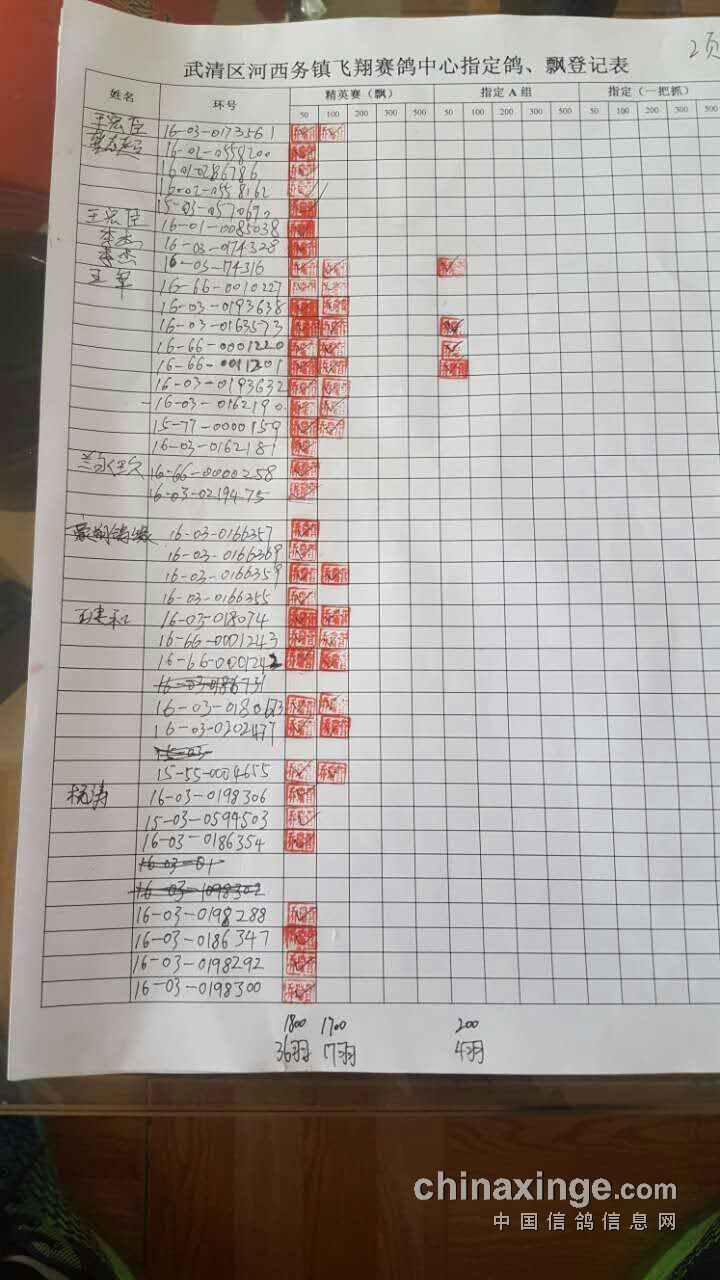 2页
武清区河西务镇飞翔赛鸽中心指定鸽、飘登记表
姓名 环号 精英赛（飘） 指定 A 组 指定（一把抓）
50 100 200 300 500 50 100 200 300 500 50 100 200 300 500
王宏臣 16-03-0173561
16-02-0558200
16 01-0286786
16-02-0558162
15-03-057069
王宏臣 16-01-0085038
李杰 16-03-074328
李杰 16-03-74316
王军 16-66-0010227
16-03-0193638
16-03-0163573
16-66-0001220
16-66-0011201
16-03-0193632
16-03-0162190
15-77-0000159
16-03-0162181
16-66-0000258
16-03-0219475
16-03-0166357
16-03-0166369
16-03-0166359
16-03-0166355
王建和 16-03-018074
16-66-0001243
16-66-0001242
16-03-0186731
16-03-01806
16-03-0302477
15-03
15-55-0004655
杨涛 16-03-0198306
15-03-0594503
16-03-0186354
16-03-01
16-03-1098302
16-03-0198288
16-03-0186347
16-03-0198292
16-03-0198300
1800 1700 200
36羽 17羽 4羽
chinaxinge.com
中国信鸽信息网